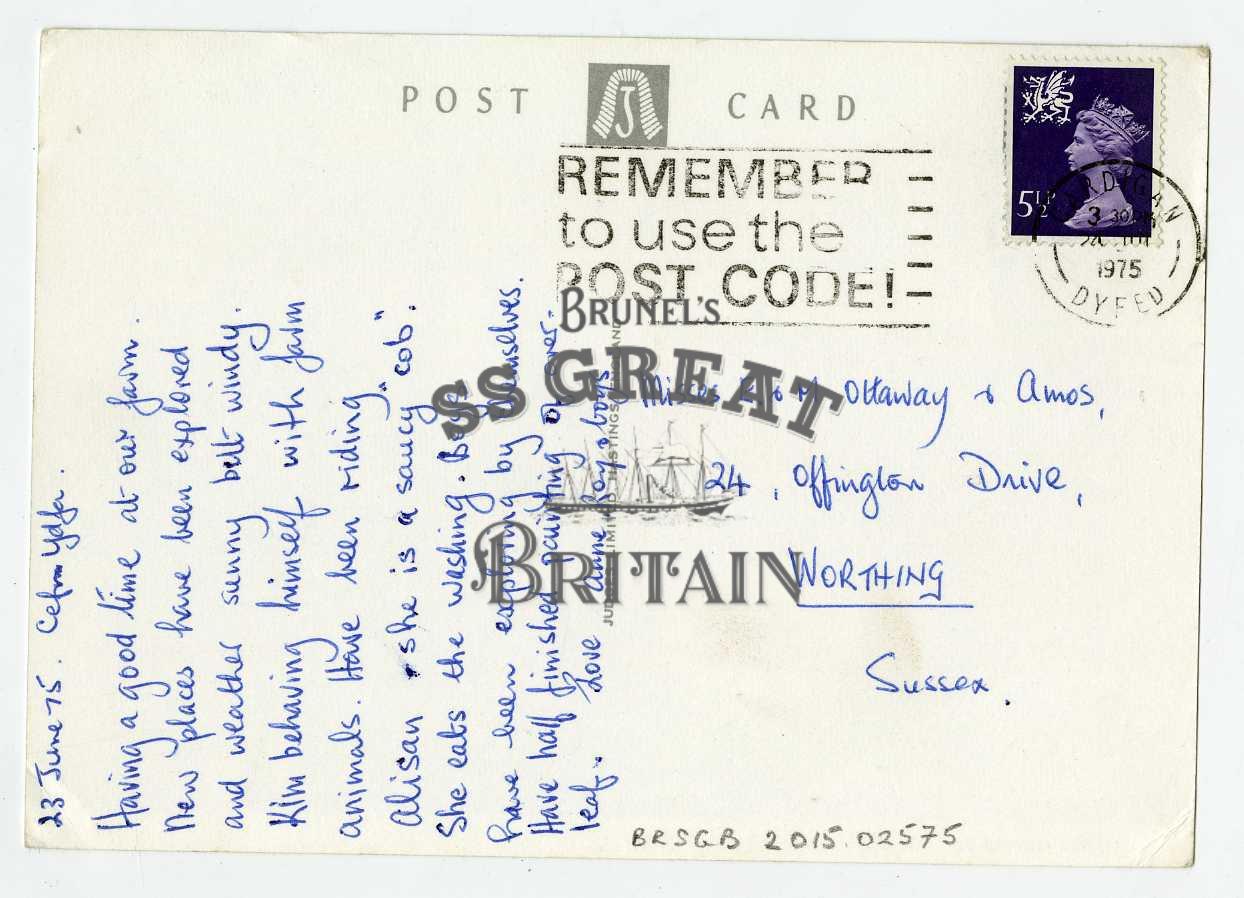 POST CARD
J
REMEMBER
to use the
POST CODE!
5½P
CARDIGAN
3 30PM
24
1975
DYFED
BRUNEL'S
SS GREAT
BRITAIN
23 June 75. Cefn
Having a good time at our farm.
New places have been explored
and weather sunny but windy.
Kim behaving himself with farm
animals. Have been riding
Alisan she is a saucy "cob".
She eats the washing. Boys
have been exploring by themselves.
Have half finished painting over-
leaf. Love Anne
Misses & M Ottaway & Amos,
24, Offington Drive,
WORTHING
Sussex.
JUDGES LIMITED HASTINGS
BRSGB 2015.02575